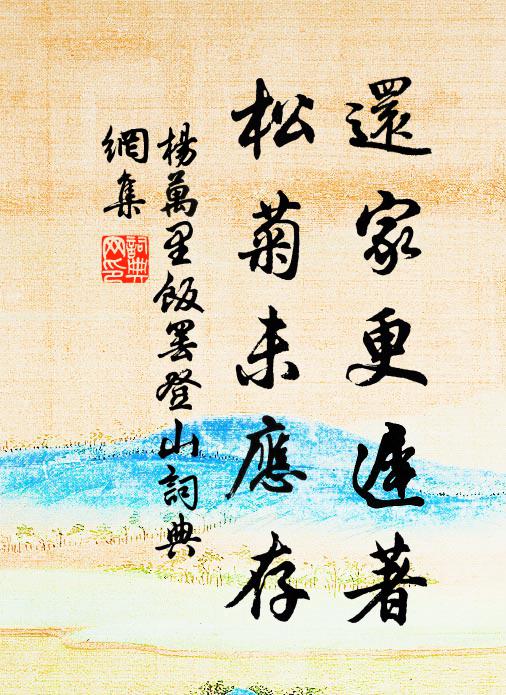 還家更遲著
松菊未應存
楊萬里飯罷登山詞典
網集
詞典
网印